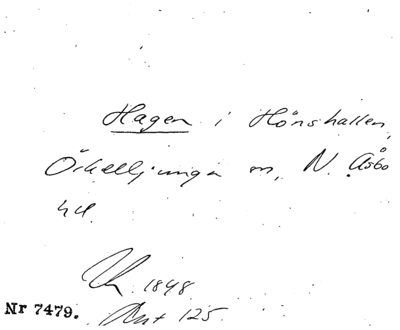 Hagen i Hönshallen,
Örkelljunga sn, N. Åsbo
hd.
1848
Nr 7479. Ant 125.